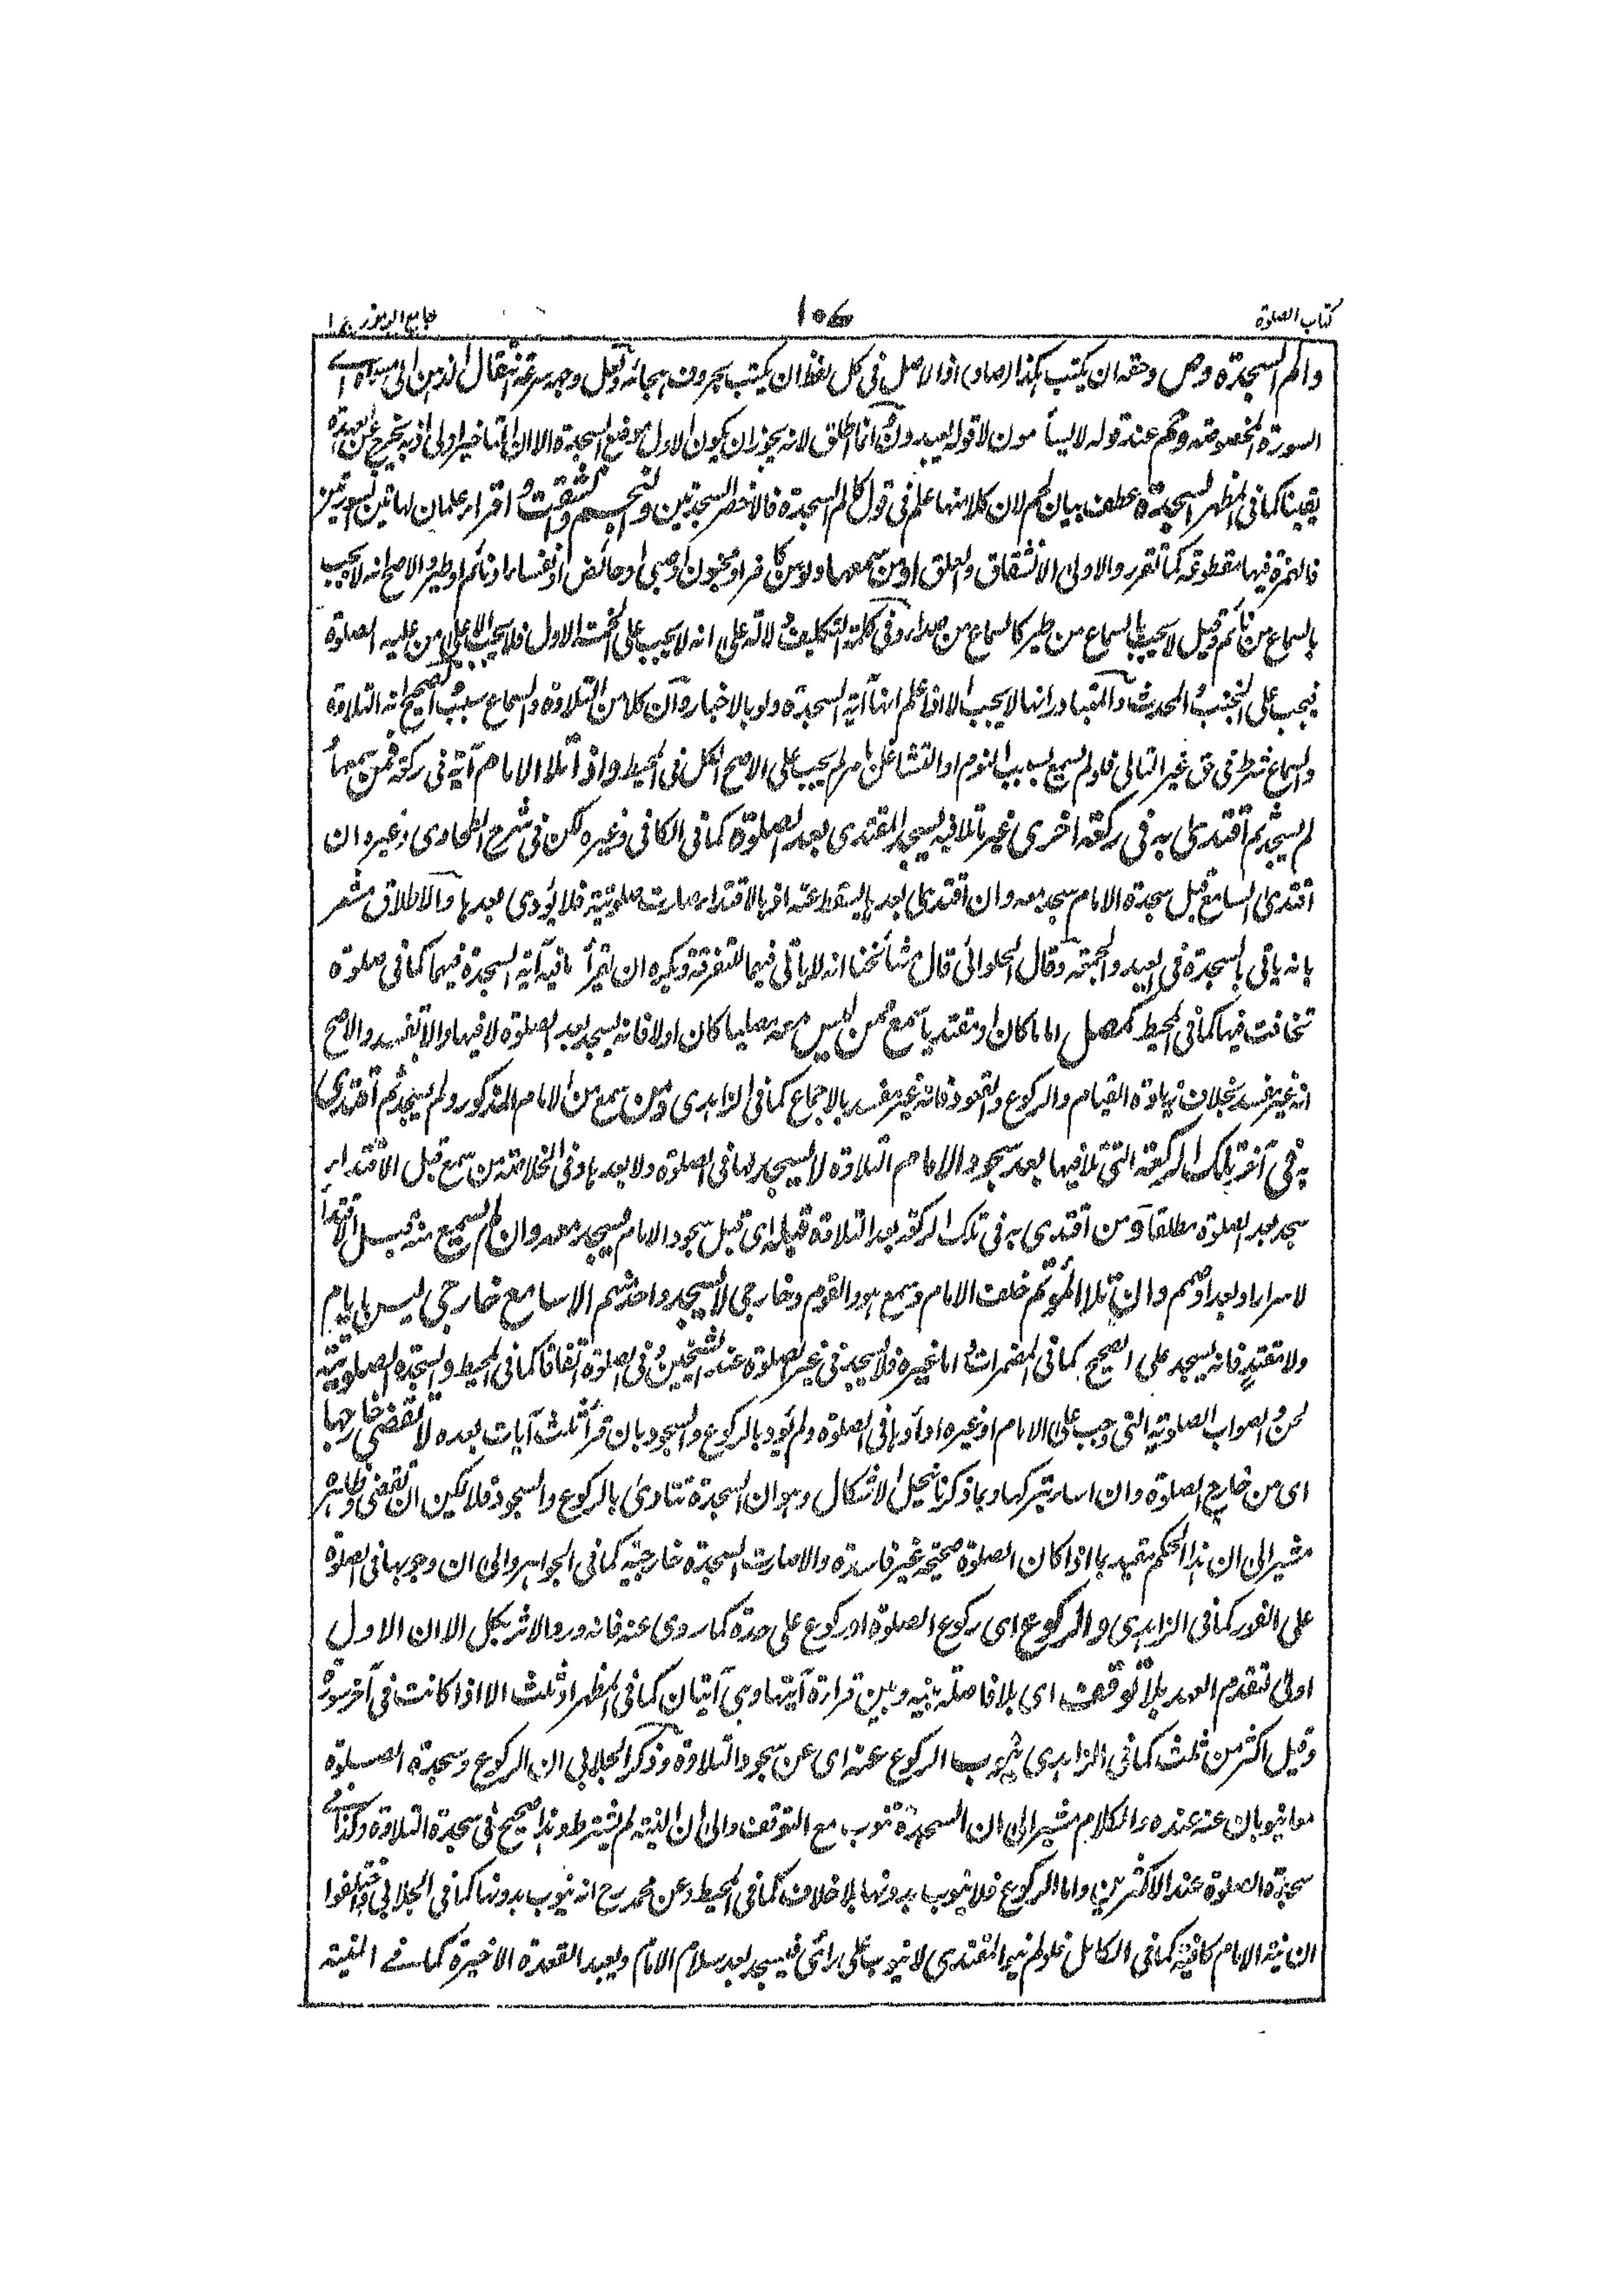 كتاب الصلوة
١٠٧
جامع الرموز ج ١
والم السجدة وص وحقه ان يكتب هكذا (صاد) اذ الاصل فى كل لفظ ان يكتب بحروف هجائه ولعل وجهه سرعة انتقال الذهن الى مسماه اے
السورة المخصوصة وحم عند قوله لا يسأمون لا قوله يعبدون وانما اطلق لانه يجوز ان يكون الاول موضع السجدة الا ان التاخير اولى اذ به يخرج عن العهدة
يقينا كما فى المظهر السجدة عطف بيان لحم لان كلا منهما علم فى قول كالم السجدة فالاخصر السجدتين والنجم وانشقت و اقرأ علمان لهاتين السورتين
فالهمزة فيها مقطوعة كما تقرر والاولى الانشقاق والعلق او من سمعها ولو من كافر او مجنون او صبى او حائض او نفساء او نائم او طير والاصح انه لا يجب
بالسماع من نائم وقيل لا يجب بالسماع من طير كالسماع من صداء وفى كلمة التكليف دلالة على انه لا يجب على الاول فلا يجب الا على من عليه الصلوة
فيجب على الجنب والمحدث والمتبادر انها لا يجب الا اذا علم انها آية السجدة ولو بالاخبار وان كلا من التلاوة والسماع سبب والصحيح انه التلاوة
والسماع شرط فى حق غير التالى فلو لم يسمع بسبب النوم او التشاغل بامر لم يجب على الاصح الكل فى المحيط واذا تلا الامام آية فى ركعة فمن سمعها
لم يسجد ثم اقتدى به فى ركعة اخرى غير ما تلا فيه يسجد المقتدى بعد الصلوة كما فى الكافى وغيره لكن فى شرح الطحاوى وغيره ان
اقتدى السامع قبل سجدة الامام سجد معه وان اقتدى بعدها يسقط عنه اذ بالاقتداء صارت صلوتية فلا يؤدى بعدها والاطلاق مشعر
بانه ياتى بالسجدة فى العيد والجمعة وقال الحلوائى قال مشائخنا انه لا ياتى فيهما للتفرقة ويكره ان يقرأ ما فيه آية السجدة فيهما كما فى صلوة
تخافت فيها كما فى المحيط كمصل اماما كان او مقتديا سمع ممن ليس معه مصليا كان اولا فانه يسجد بعد الصلوة لا فيها والا تفسد والاصح
انه غير مفسد بخلاف زيادة القيام والركوع والقعود فانه غير مفسد بالاجماع كما فى الزاهدى ومن سمع من الامام المذكور ولم يسجد ثم اقتدى
به فى آخر تلك الركعة التى تلا فيها بعد سجود الامام للتلاوة لا يسجد لها فى الصلوة ولا بعدها وفى الخلاصة من سمع قبل الاقتداء
سجد بعد الصلوة مطلقا ومن اقتدى به فى تلك الركعة بعد التلاوة قبله اى قبل سجود الامام يسجد معه وان لم يسمع منه قبل الاقتداء
لاسراره او بعد او صمم وان تلا المؤتم خلف الامام وسمع هو والقوم وخارجى لا يسجد واحد منهم الا سامع خارجى ليس بامام
ولا مقتد فانه يسجد على الصحيح كما فى المضمرات اما غيره فلا يسجد فى غير الصلوة عند الشيخين وفى الصلوة اتفاقا كما فى المحيط والسجدة الصلوتية
لحن والصواب الصلوية التى وجب على الامام او غيره اداؤها فى الصلوة ولم يؤد بالركوع والسجود بان قرأ ثلث آيات بعده لا تقضى خارجها
اى من خارج الصلوة وان اساء بتركها وبما ذكرنا ينحل الاشكال وهو ان السجدة تتادى بالركوع والسجود فلا يمكن ان تقضى وظاهره
مشير الى ان هذا الحكم مقيد بما اذا كان الصلوة صحيحة غير فاسدة والا صارت السجدة خارجية كما فى الجواهر والى ان وجوبها فى الصلوة
على الفور كما فى الزاهدى والركوع اى ركوع الصلوة او ركوع على حدة كما روى عنه فانه ورد الاثر بكل الا ان الاول
اولى لتقدم العهد بلا توقف اى بلا فاصلة بينه وبين قراءة آيتها وهى آيتان كما فى المظهر او ثلث الا اذا كانت فى آخر سورة
وقيل اكثر من ثلث كما فى الزاهدى ينوب الركوع عنه اى عن سجود التلاوة وذكر الجلابى ان الركوع وسجدة الصلوة
معا ينوبان عنه عنده والكلام مشير الى ان السجدة تنوب مع التوقف والى ان النية لم يشترط وهذا صحيح فى سجدة التلاوة وكذا فے
سجدة الصلوة عند الاكثرين واما الركوع فلا ينوب بدونها بلا خلاف كما فى المحيط وعن محمد رح انه ينوب بدونها كما فى الجلابى واختلفوا
ان نية الامام كافية كما فى الكامل فلو لم ينو المقتدى لا ينوب على رائى فيسجد بعد سلام الامام ويعيد القعدة الاخيرة كما فے المنية